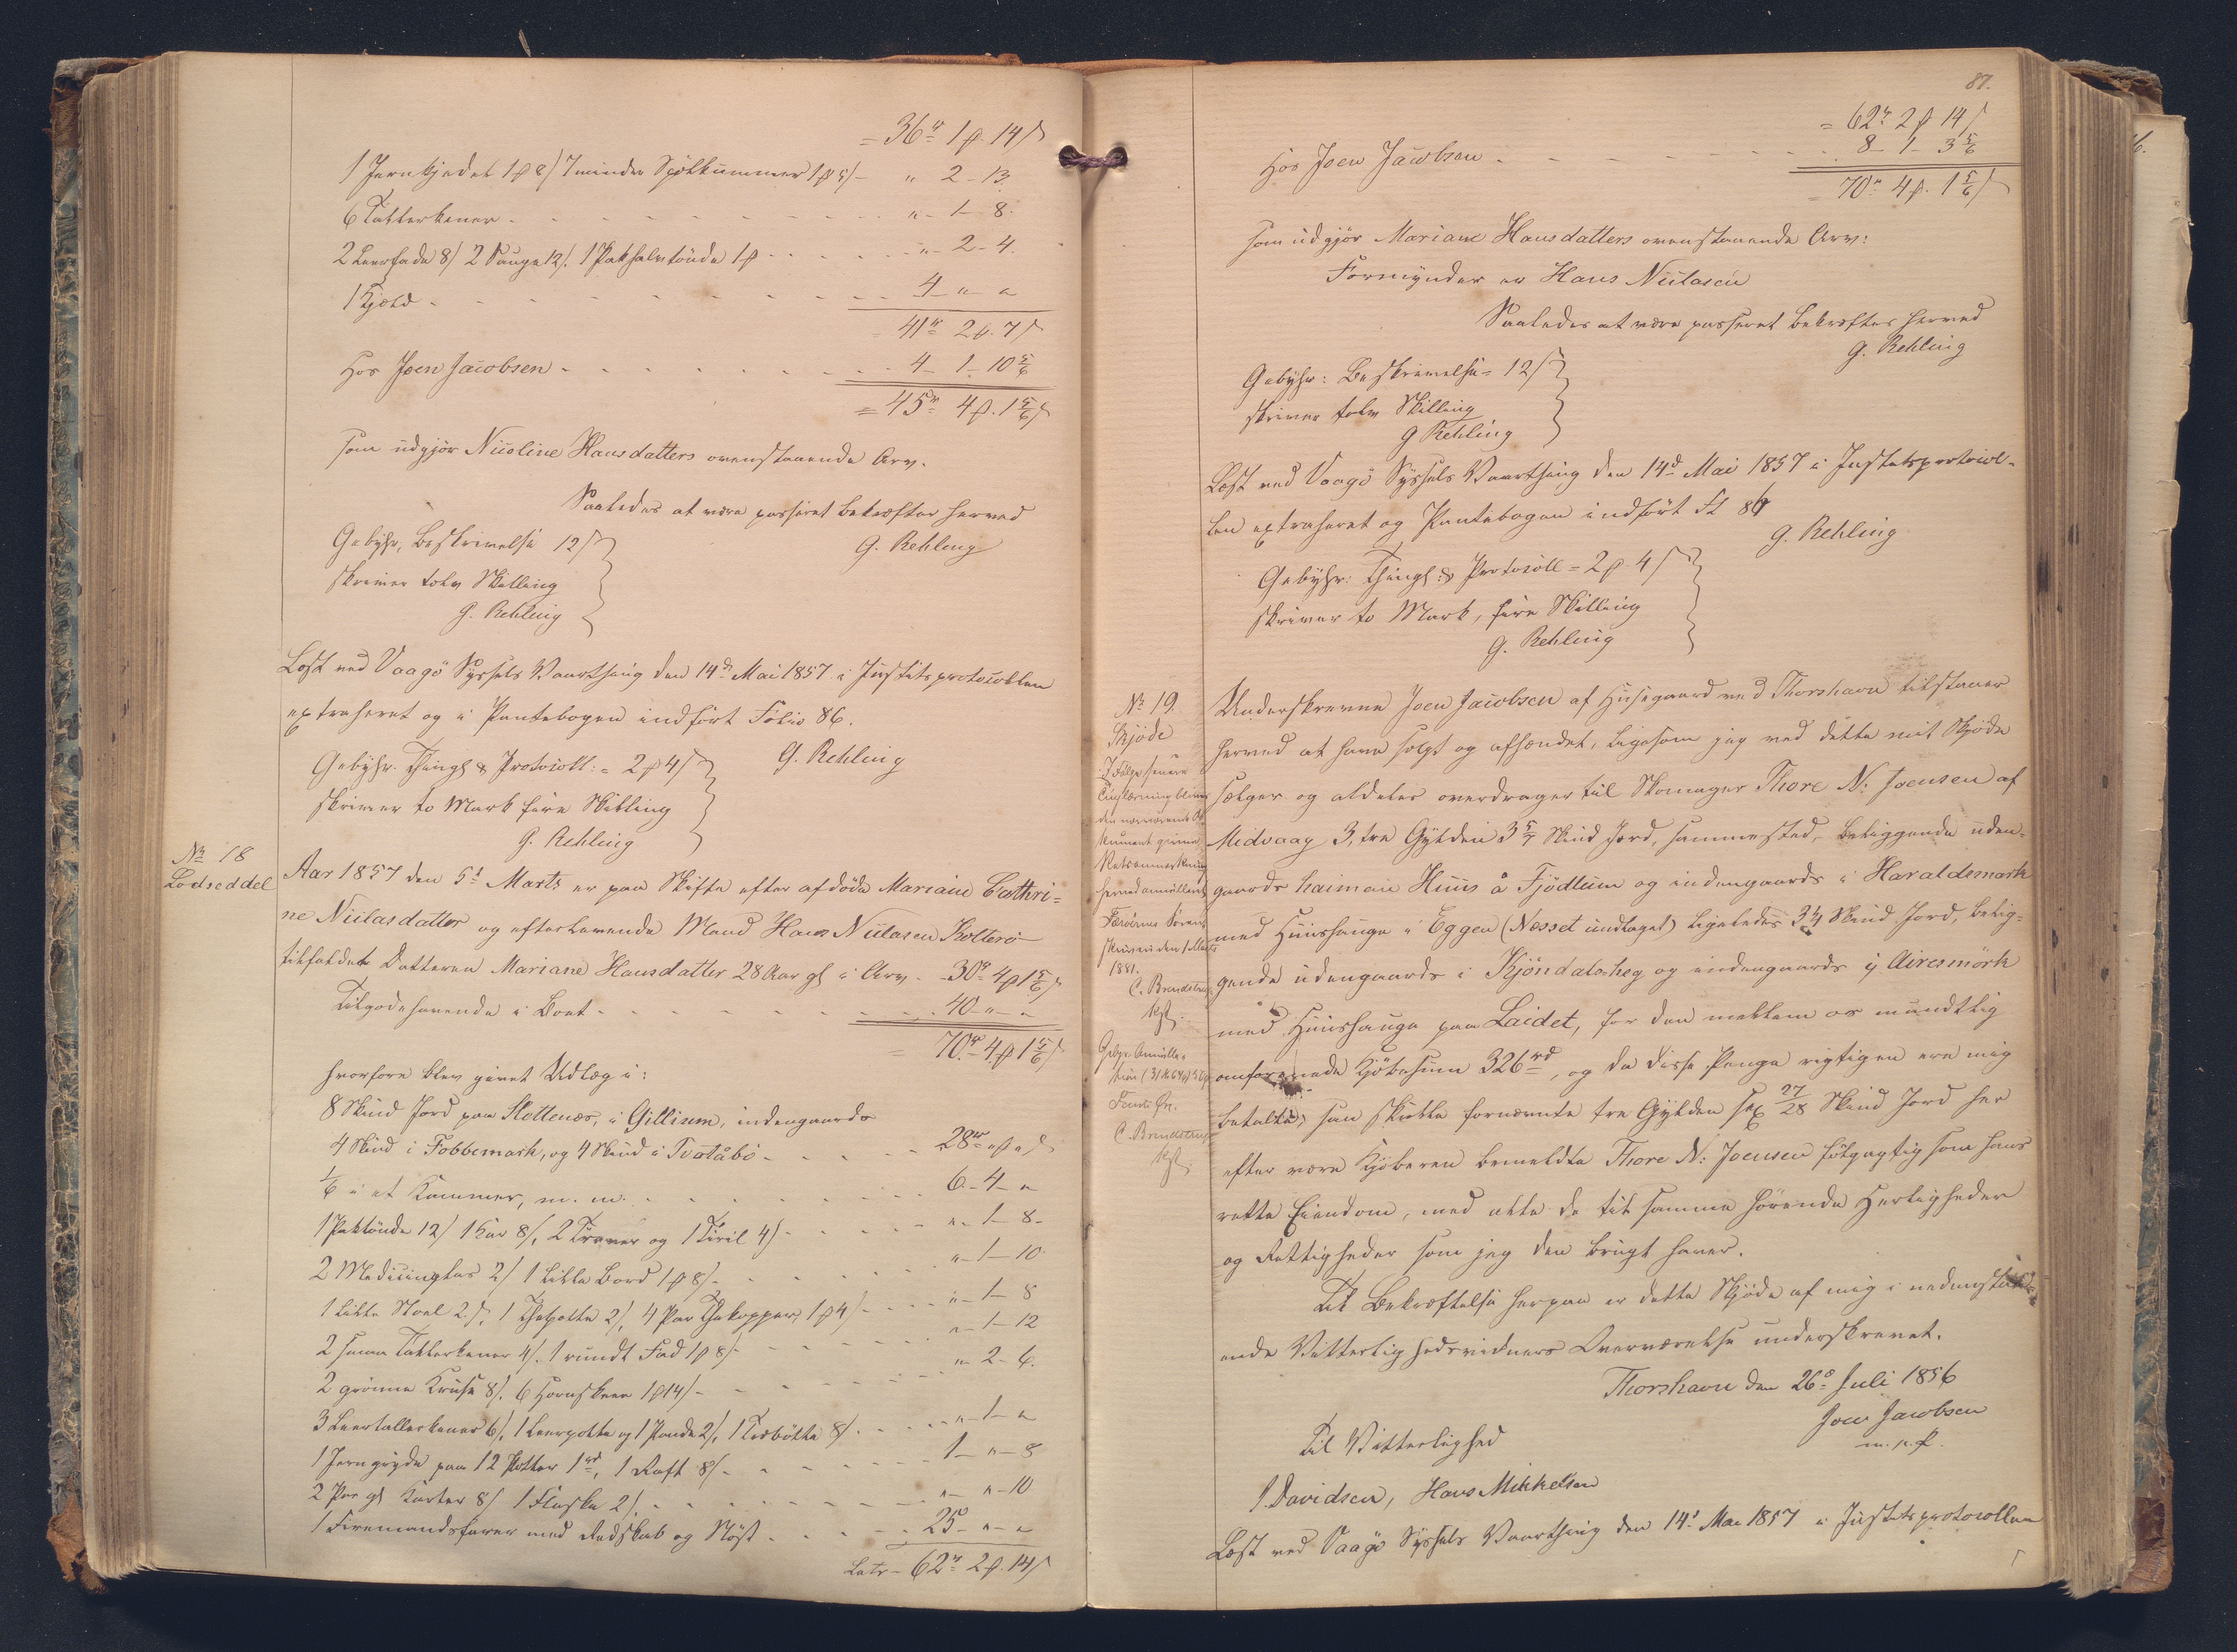 = 36 rd 1 ß. 14 s
1 Jernkjedel 1 ß 8 s 7 mindre Spölkummer 1 ß 5 s - " 2 - 13.
6 Tallerkener - - - " - 1 - 8.
2 Leerfade 8 s 2 Sauge 12 s. 1 Paksalttönde 1 ß - - - " - 2 - 4.
1 Kjæld - - - 4 - " - "
41 rd 2 ß. 7 s
Hos Joen Jacobsen - - - 4 - 1 - 10 5/6
= 45 rd 4 ß. 1 5/6 s
som udgjör Nicoline Hansdatters ovenstaaende Arv.
Saaledes at være passeret bekræfter herved
G. Rehling
Gebyhr, Beskrivelse 12 s
skriver tolv Skilling
G. Rehling
Læst ved Vaagö Syssels Vaarthing den 14d Mai 1857 i Justitsprotocollen
extraheret og i Pantebogen indfört Folio 86.
G. Rehling
Gebyhr. Thingl. & Protocoll: = 2 ß 4 s
skriver to Mark fire Skilling
G. Rehling
No 18
Lodseddel
Aar 1857 den 5t Marts er paa Skifte efter afdöde Mariane Cathri=
ne Niclasdatter og efterlevende Mand Hans Niclasen Kolterö
tilfaldet Datteren Mariane Hansdatter 28 Aar gl. i Arv - 30 rd 4 ß 1 5/6 s
Tilgodehavende i Boet - - - 40 - " - "
= 70 rd 4 ß 1 5/6 s
hvorfore blev givet Udlæg i:
8 Skind Jord paa Slottenæs, i Gillisum, indengaards
4 Skind i Fobbemark, og 4 Skind i Tvatåbö - - - 28 rd " ß " s
1/6 i et Kammer, m. m. - - - 6 - 4 - "
1 Paktönde 12 s 1 Kar 8 s, 2 Traver og 1 Tiril 4 s - - - " - 1 - 8 -
2 Medicinglas 2 s 1 lille Bord 1 ß 8 s - - - " - 1 - 10
1 lille Stoel 2 s, 1 Thepotte 2 s, 4 Par Thekopper 1 ß 4 s - - - " - 1 - 8
2 smaa Tallerkener 4 s. 1 rundt Fad 1 ß 8 s - - - " - 1 - 12
2 grönne Kruse 8 s. 6 Hornskeer 1 ß 14 s - - - " - 2 - 6.
3 Leertallerkener 6 s, 1 Leerpotte og 1 Pande 2 s, 1 Tedbötte 8 s - - - " - 1 - "
1 Jerngryde paa 12 Potter 1 rd, 1 Raft 8 s - - - 1 - " - 8
2 Par gl. Karter 8 s 1 Flaske 2 s. - - - " - " - 10
1 Firemandsfarer med Redskab og Nöst - - - 25 - " - "
Latr - 62 rd 2 ß. 14 s
87.
= 62 rd 2 ß 14 s
Hos Joen Jacobsen - - - 8 - 1 - 3 5/6
= 70 rd 4 ß. 1 5/6 s
som udgjör Mariane Hansdatters ovenstaaende Arv:
Formynder er Hans Niclasen
Saaledes at være passeret bekræfter herved
G. Rehling
Gebyhr: Beskrivelse = 12 s
skriver tolv Skilling
G Rehling
Læst ved Vaagö Syssels Vaarthing den 14d Mai 1857 i Justitsprotocol-
len extraheret og Pantebogen indfört Fl 86
G. Rehling
Gebyhr: Thingl: & Protocoll = 2 ß 4 s
skriver to Mark, fire Skilling
G. Rehling
No 19.
Skjöde
I Følge senere
Tinglæsning bliver
den nærværende Do
kument givne
Retsanmærkning
herved annulleret
Færøernes Sorens
skriveri den 1 Marts
1881.
C. Brendstrup
kst.
Gebyr. Annulla-
C. Brendstrup
kst.
Underskrevne Joen Jacobsen af Husegaard ved Thorshavn tilstaaer
herved at have solgt og afhændet, ligesom jeg ved dette mit Skjöde
sælger og aldeles overdrager til Skomager Thore N: Joensen af
Midvaag 3, tre Gylden 3 5/7 Skind Jord, sammested, beliggende uden-
gaards haiman Huus å Fjödlum og indengaards i Haraldsmark
med Huushauge i Eggen (Nesset undtaget) ligeledes 3 1/4 Skind Jord, belig-
gende udengaards i Kjöndalsheg og indengaards ij Airesmörk
med Huushauge paa Laidet, for den mellem os mundtlig
omforenede Kjöbesum 326 rd, og da disse Penge rigtigen ere mig
betalte, saa skulle fornævnte tre Gylden sex 27/28 Skind Jord her
efter være Kjöberen bemeldte Thore N: Joensen fölgagtig som hans
rette Eiendom, med alle de til samme hörende Herligheder
og Rettigheder som jeg den brugt haver.
Til Bekræftelse herpaa er dette Skjöde af mig i nedenstaa-
ende Vitterlighedsvidners Overværelse underskrevet.
Thorshavn den 26d Juli 1856
Joen Jacobsen
m. p. P.
Til Vitterlighed
J. Davidsen, Hans Mikkelsen
Læst ved Vaagö Syssels Vaarthing den 14d Mai 1857 i Justitsprotocollen